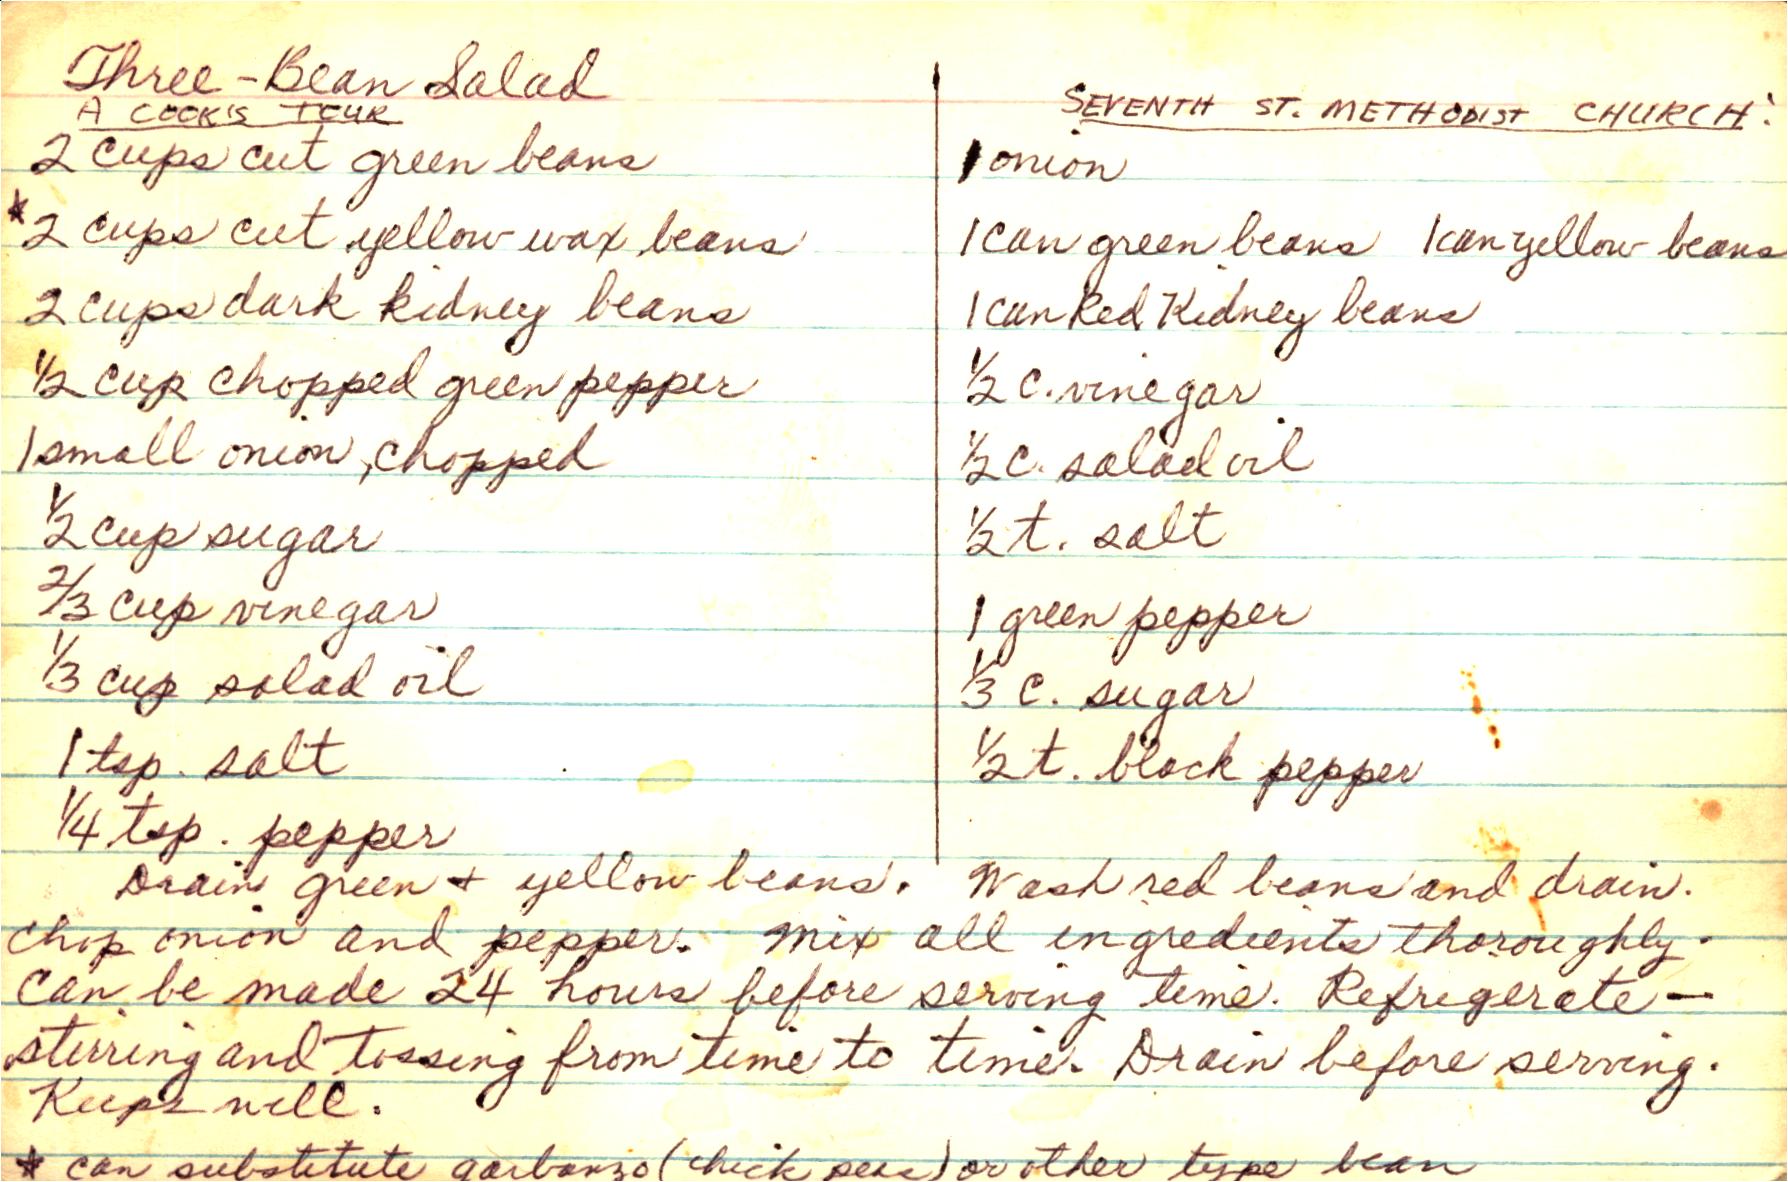 Three-Bean Salad
A COOK'S TOUR
2 cups cut green beans
*2 cups cut yellow wax beans
2 cups dark kidney beans
1/2 cup chopped green pepper
1 small onion, chopped
1/2 cup sugar
2/3 cup vinegar
1/3 cup salad oil
1 tsp. salt
1/4 tsp. pepper
SEVENTH ST. METHODIST CHURCH:
1 onion
1 can green beans 1 can yellow beans
1 can Red Kidney beans
1/2 c. vinegar
1/2 c. salad oil
1/2 t. salt
1 green pepper
1/3 c. sugar
1/2 t. black pepper
Drain green + yellow beans. Wash red beans and drain.
Chop onion and pepper. Mix all ingredients thoroughly.
Can be made 24 hours before serving time. Refrigerate—
stirring and tossing from time to time. Drain before serving.
Keeps well.
* can substitute garbanzo (chick peas) or other type bean